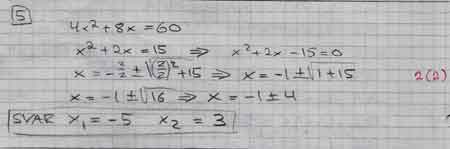 5
4x² + 8x = 60
x² + 2x = 15 ⇒ x² + 2x - 15 = 0
x = -2/2 ± √(2/2)² + 15 ⇒ x = -1 ± √1 + 15
2(2)
x = -1 ± √16 ⇒ x = -1 ± 4
SVAR x₁ = -5 x₂ = 3